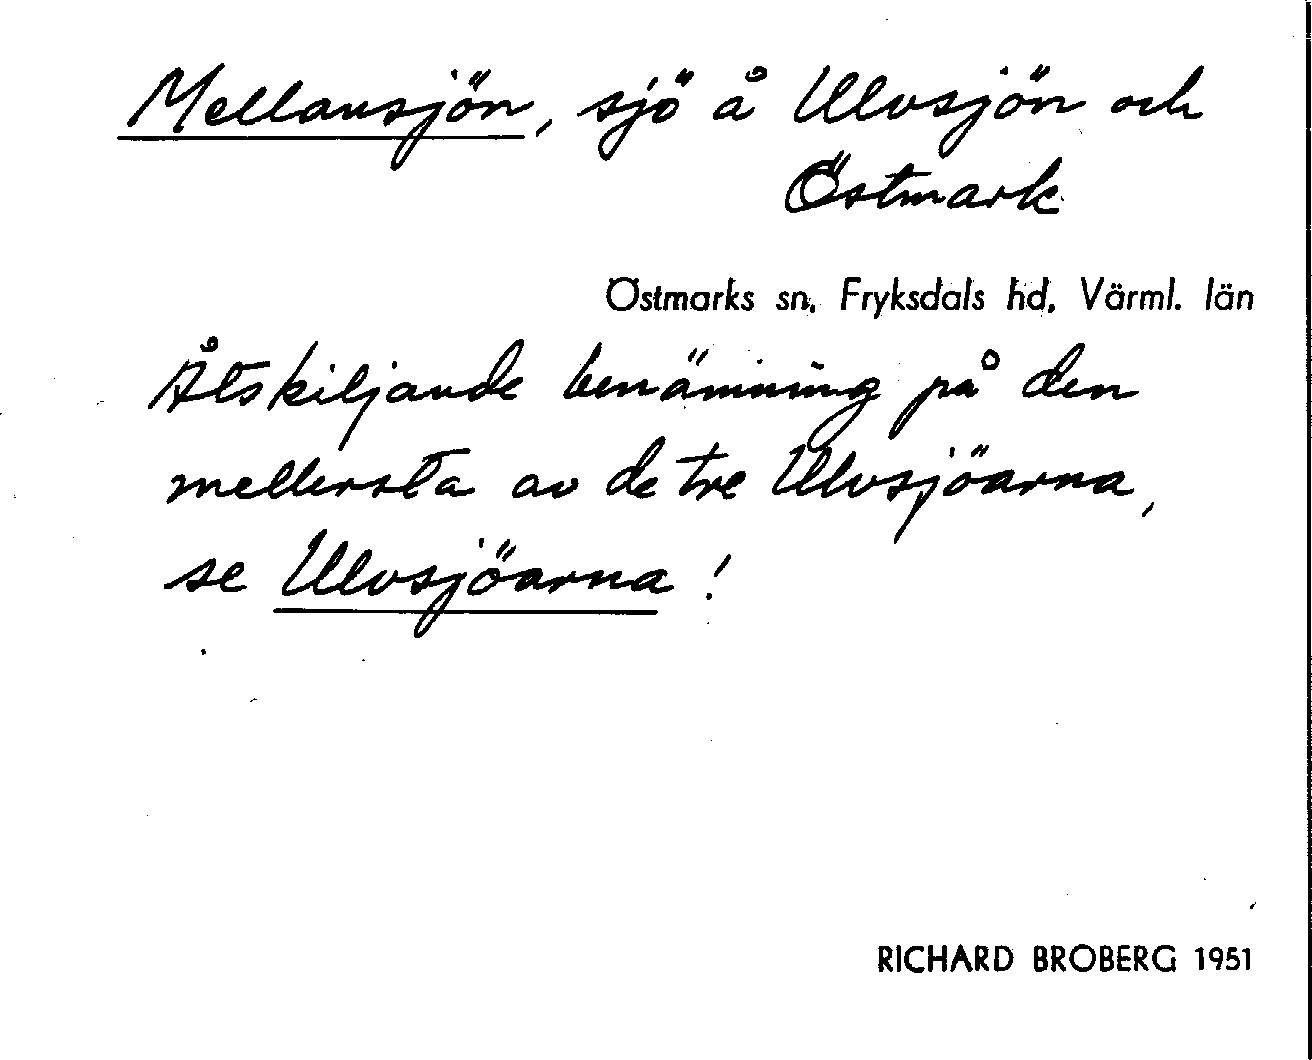 Mellansjön, sjö å Ulvsjön och
Östmark
Östmarks sn, Fryksdals hd, Värml. län
Åtskiljande benämning på den
mellersta av de tre Ulvsjöarna,
se Ulvsjöarna!
RICHARD BROBERG 1951